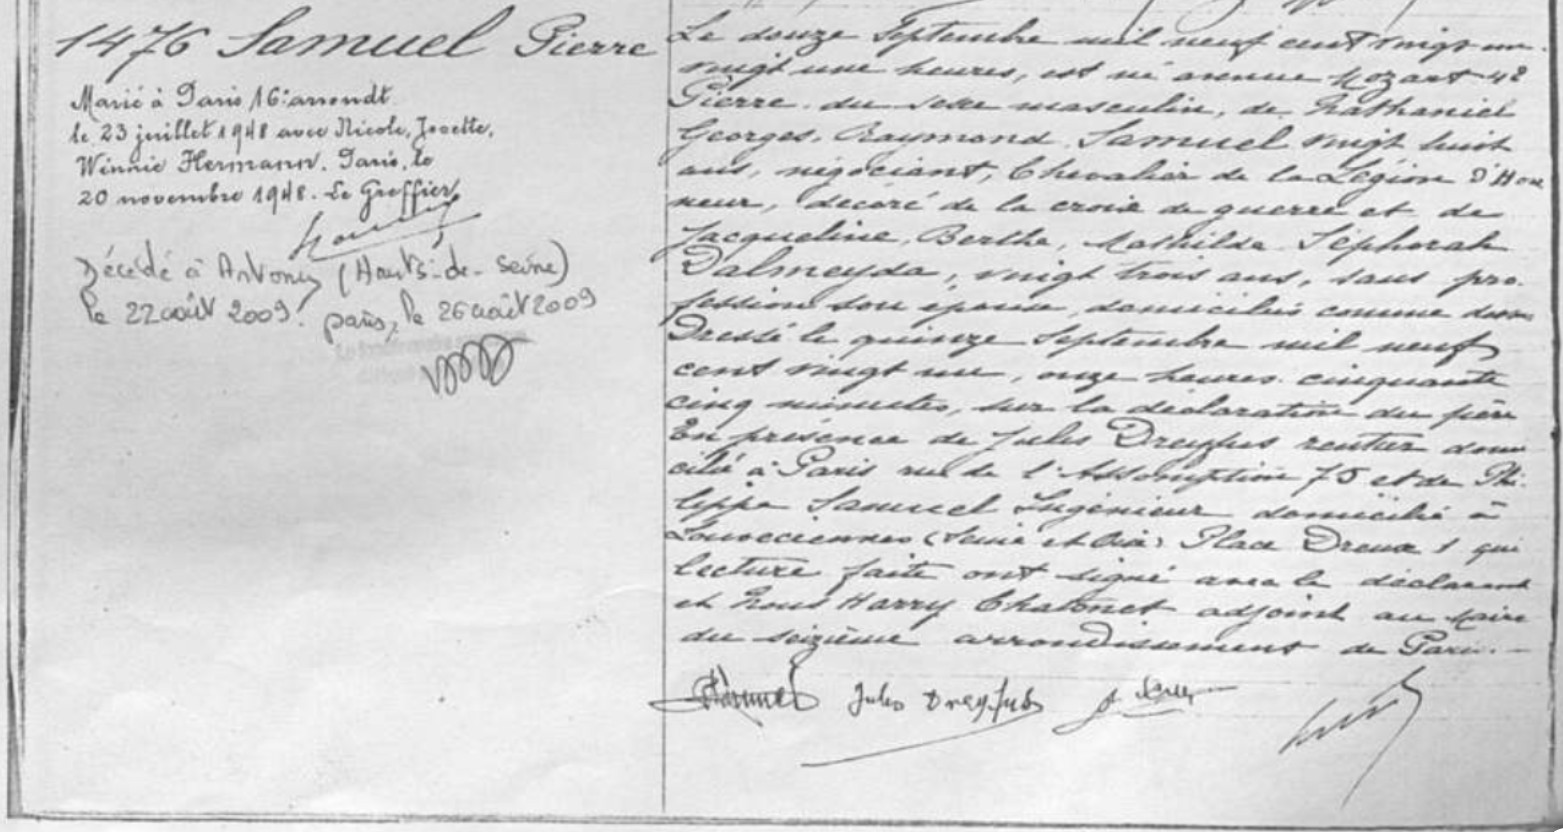 1476 Samuel Pierre
Marié à Paris 16e arrondt
le 23 juillet 1948 avec Nicole, Josette,
Winnie Hermann. Paris, le
20 novembre 1948. Le Greffier,
Décédé à Antony (Hauts-de-Seine)
le 22 août 2009. Paris, le 26 août 2009
Le douze Septembre mil neuf cent vingt un
vingt une heures, est né avenue Mozart 42
Pierre du sexe masculin, de Nathaniel
Georges, Raymond Samuel vingt huit
ans, négociant, Chevalier de la Légion d'Hon
neur, décoré de la croix de guerre et de
Jacqueline, Berthe, Mathilde Séphorah
Dalmeyda, vingt trois ans, sans pro
fession son épouse, domiciliés comme dessus
Dressé le quinze Septembre mil neuf
cent vingt un, onze heures cinquante
cinq minutes, sur la déclaration du père
En présence de Jules Dreyfus rentier domi
cilié à Paris rue de l'Assomption 75 et de Phi
lippe Samuel Ingénieur domicilié à
Louveciennes (Seine et Oise) Place Dreux 1 qui
lecture faite ont signé avec le déclarant
et Nous Harry Chatenet adjoint au Maire
du seizième arrondissement de Paris. -
Samuel Jules Dreyfus